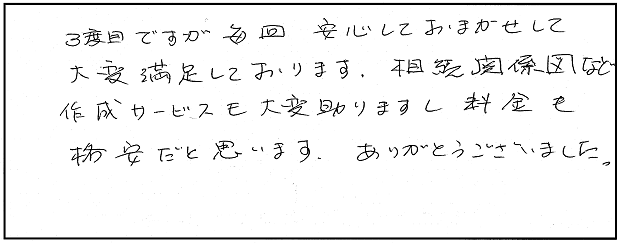 3度目ですが毎回 安心しておまかせして
大変満足しております. 相続関係図など
作成サービスも大変助りますし 料金も
格安だと思います. ありがとうございました。